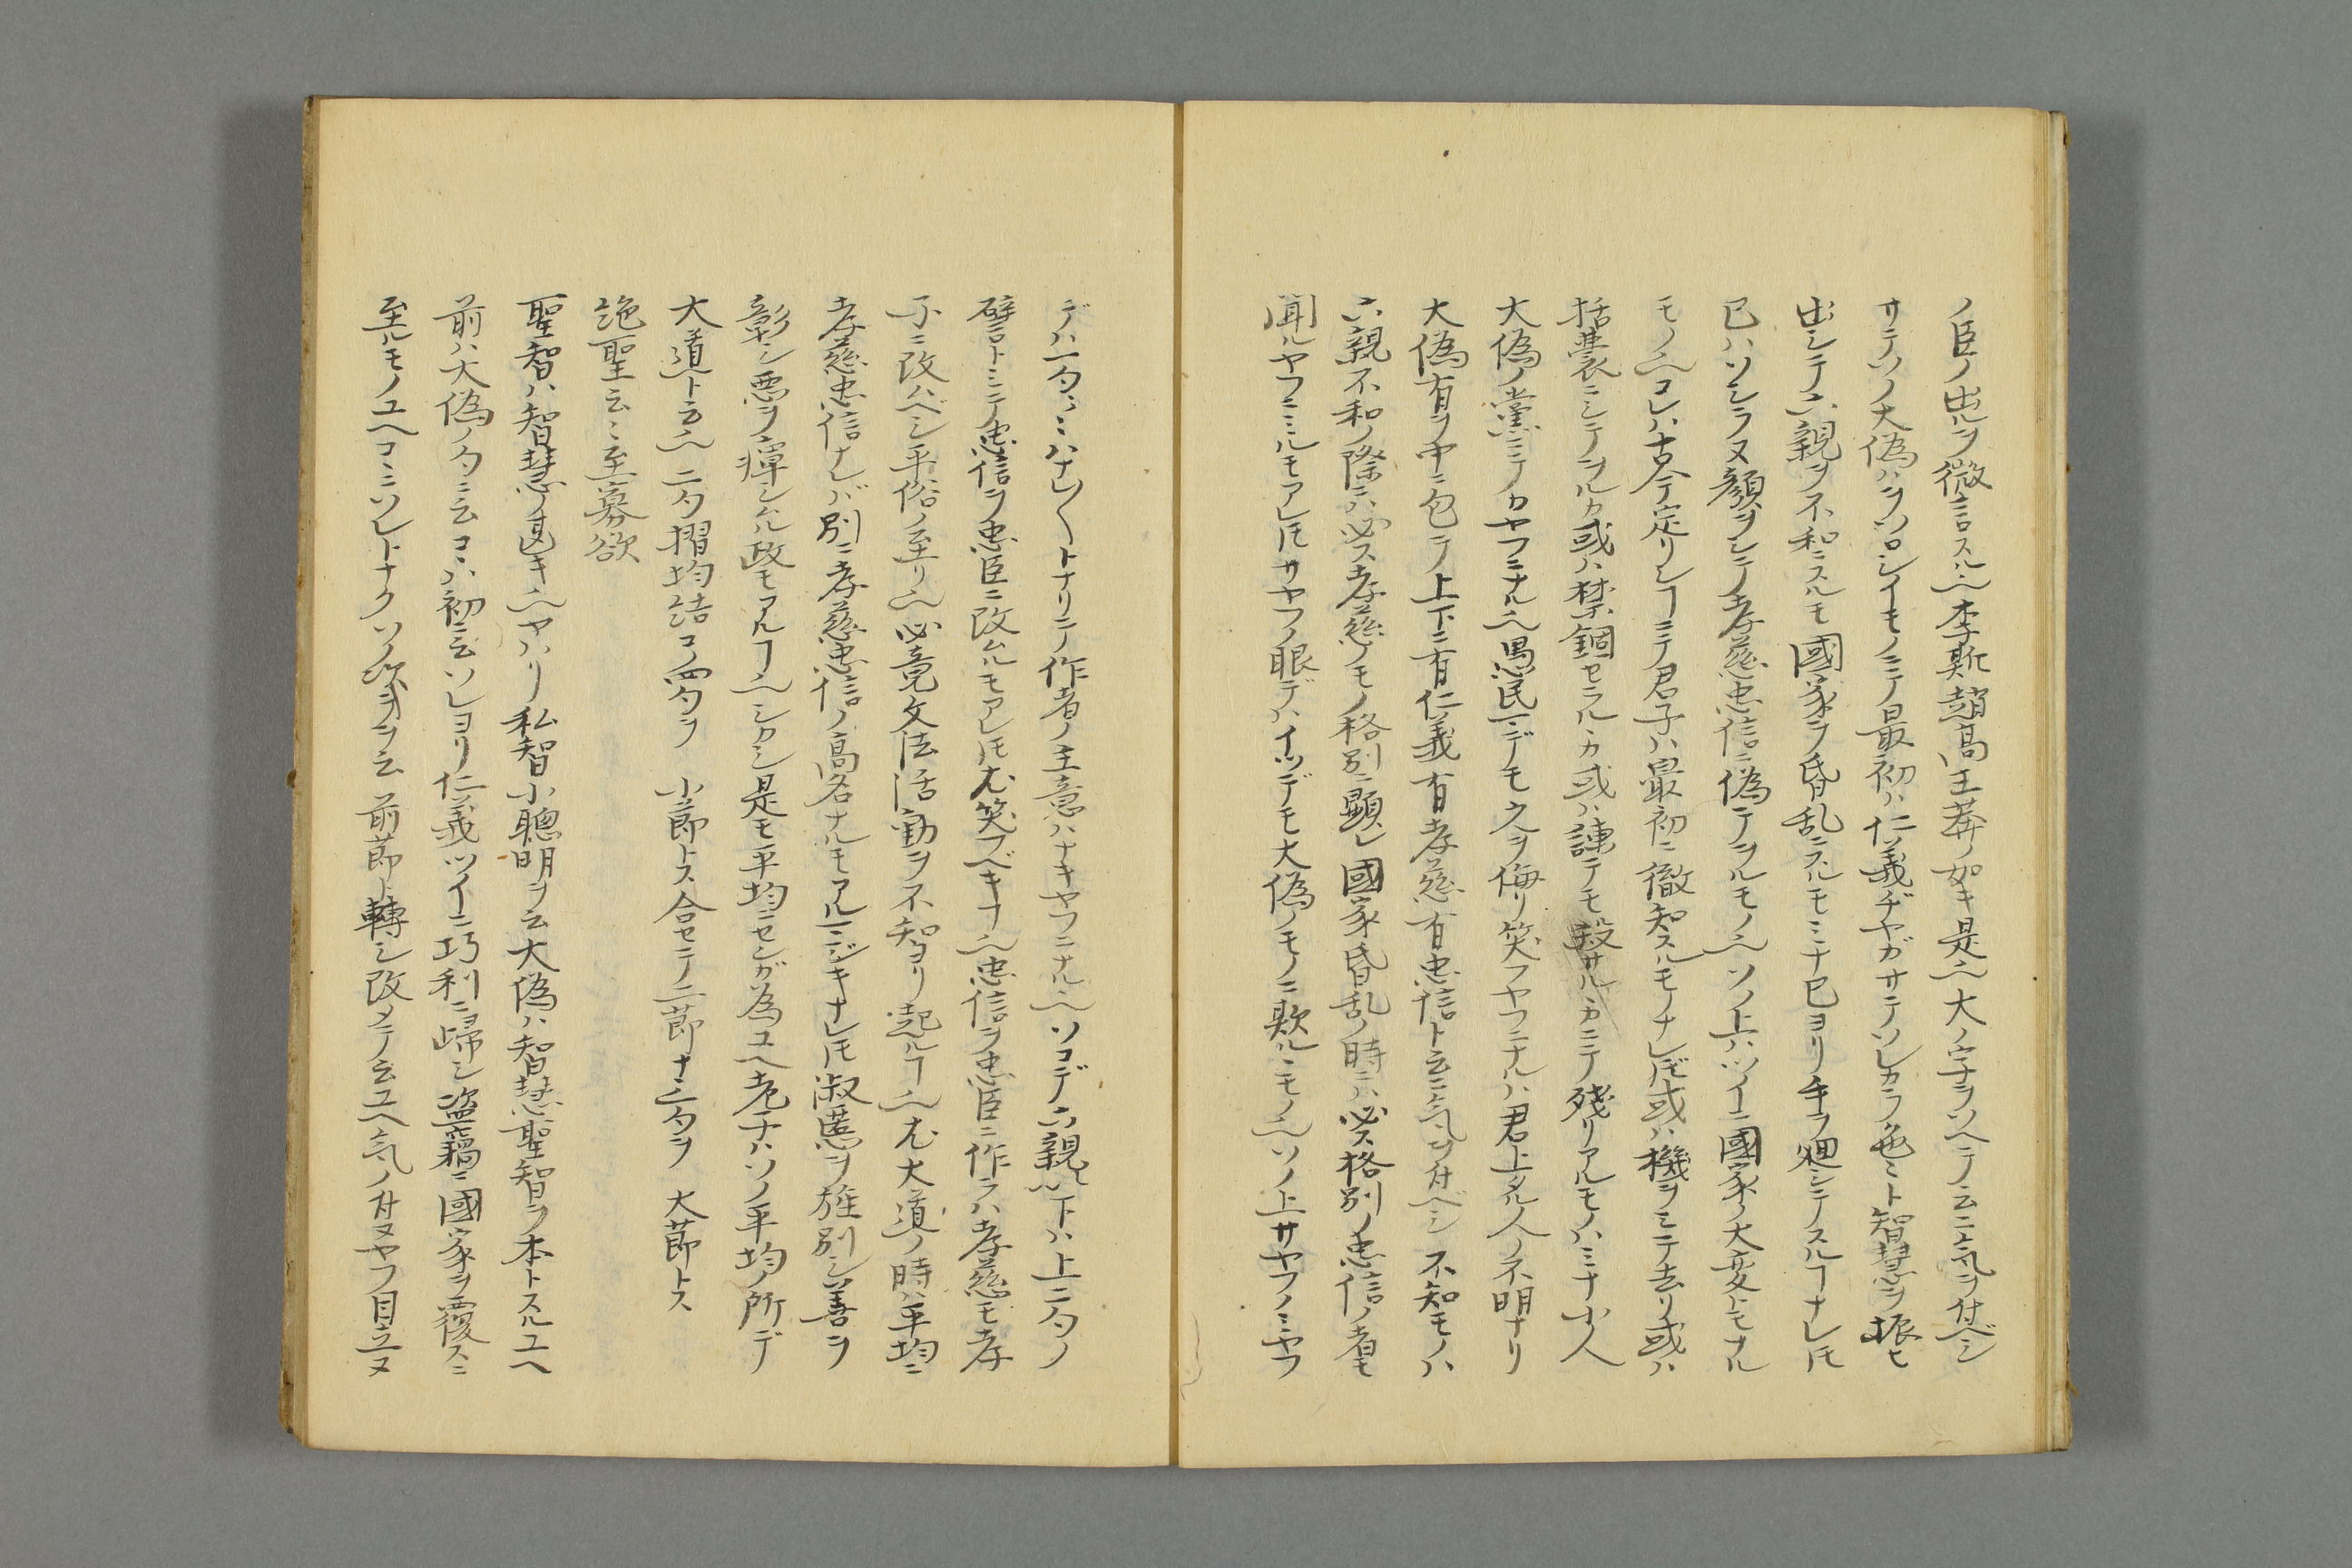 ノ臣ノ出ルヲ微言スル也李斯趙高王莽ノ如キ是也大ノ字ヲソヘテ云ニ気ヲ付ベシ
サテソノ大偽ハヲソロシイモノニテ最初ハ仁義ヂヤガサテソレカラ色ミト智慧ヲ振ヒ
出シテ六親ヲ不和ニスルモ國家ヲ昏乱ニスルモミナ已ヨリ手ヲ廻シテスルヿナレ𪜈
已ハソシラヌ顔ヲシテ孝慈忠信ニ偽テヲルモノ也ソノ上ハツイニ國家ノ大変トモナル
モノ也コレハ古今テ定リシヿニテ君子ハ最初ニ徹知スルモノナレ𪜈或ハ機ヲミテ去リ或ハ
括囊ニシテヲルカ或ハ禁錮セラルヽカ或ハ諫テモ殺サルヽカニテ残リアルモノハミナ小人
大偽ノ黨ミテノカヤフニナル也愚民マデモ之ヲ侮リ笑フヤフニナルハ君上タル人ノ不明ナリ
大偽有ヲ中ニ包テ上下ニ有仁義有孝慈有忠信ト云ニ気ヲ付ベシ不知モノハ
六親不和ノ際ニハ必ス孝慈ノモノ格別ニ顕レ國家昏乱ノ時ニハ必ス格別ノ忠信ノ者モ
聞ルヤフニミルモアレ𪜈サヤフノ眼デハイツデモ大偽ノモノニ欺ルヽモノ也ソノ上サヤフノミヤフ
デハ一句〻ミハナレ〱トナリテ作者ノ主意ハナキヤフニナル也ソコデ六親以下ハ上二句ノ
譬トミテ忠信ヲ忠臣ニ改ムルモアレ𪜈尤笑フベキナ也忠信ヲ忠臣ニ作ラハ孝慈モ孝
子ニ改ハベシ平俗ノ至リ也必竟文法活動ヲ不知ヨリ起ルヿ也尤大道ノ時ハ平均ニ
孝慈忠信ナレバ別ニ孝慈忠信ノ高名ナルモアルマジキナレ𪜈淑慝ヲ旌別シ善ヲ
彰シ悪ヲ癉シムル政モアルヿ也シカシ是モ平均ニセンガ為ユヘ老子ハソノ平均ノ所デ
大道ト云也二句摺均詰コノ四句ヲ　小節トス合セテ二節十二句ヲ　大節トス
絶聖云〻至寡欲
聖智ハ智慧ノ甚キ也ヤハリ私智小聰明ヲ云大偽ハ智慧聖智ヲ本トスルユヘ
前ハ大偽ノ句ニ云コヽハ初ニ云ソレヨリ仁義ツイニ巧利ニ歸シ盗竊ニ國家ヲ覆スニ
至ルモノユヘコヽニソレトナクソノ次第ヲ云前節ト轉シ改メテ云ユヘ気ノ付ヌヤフ目立ヌ